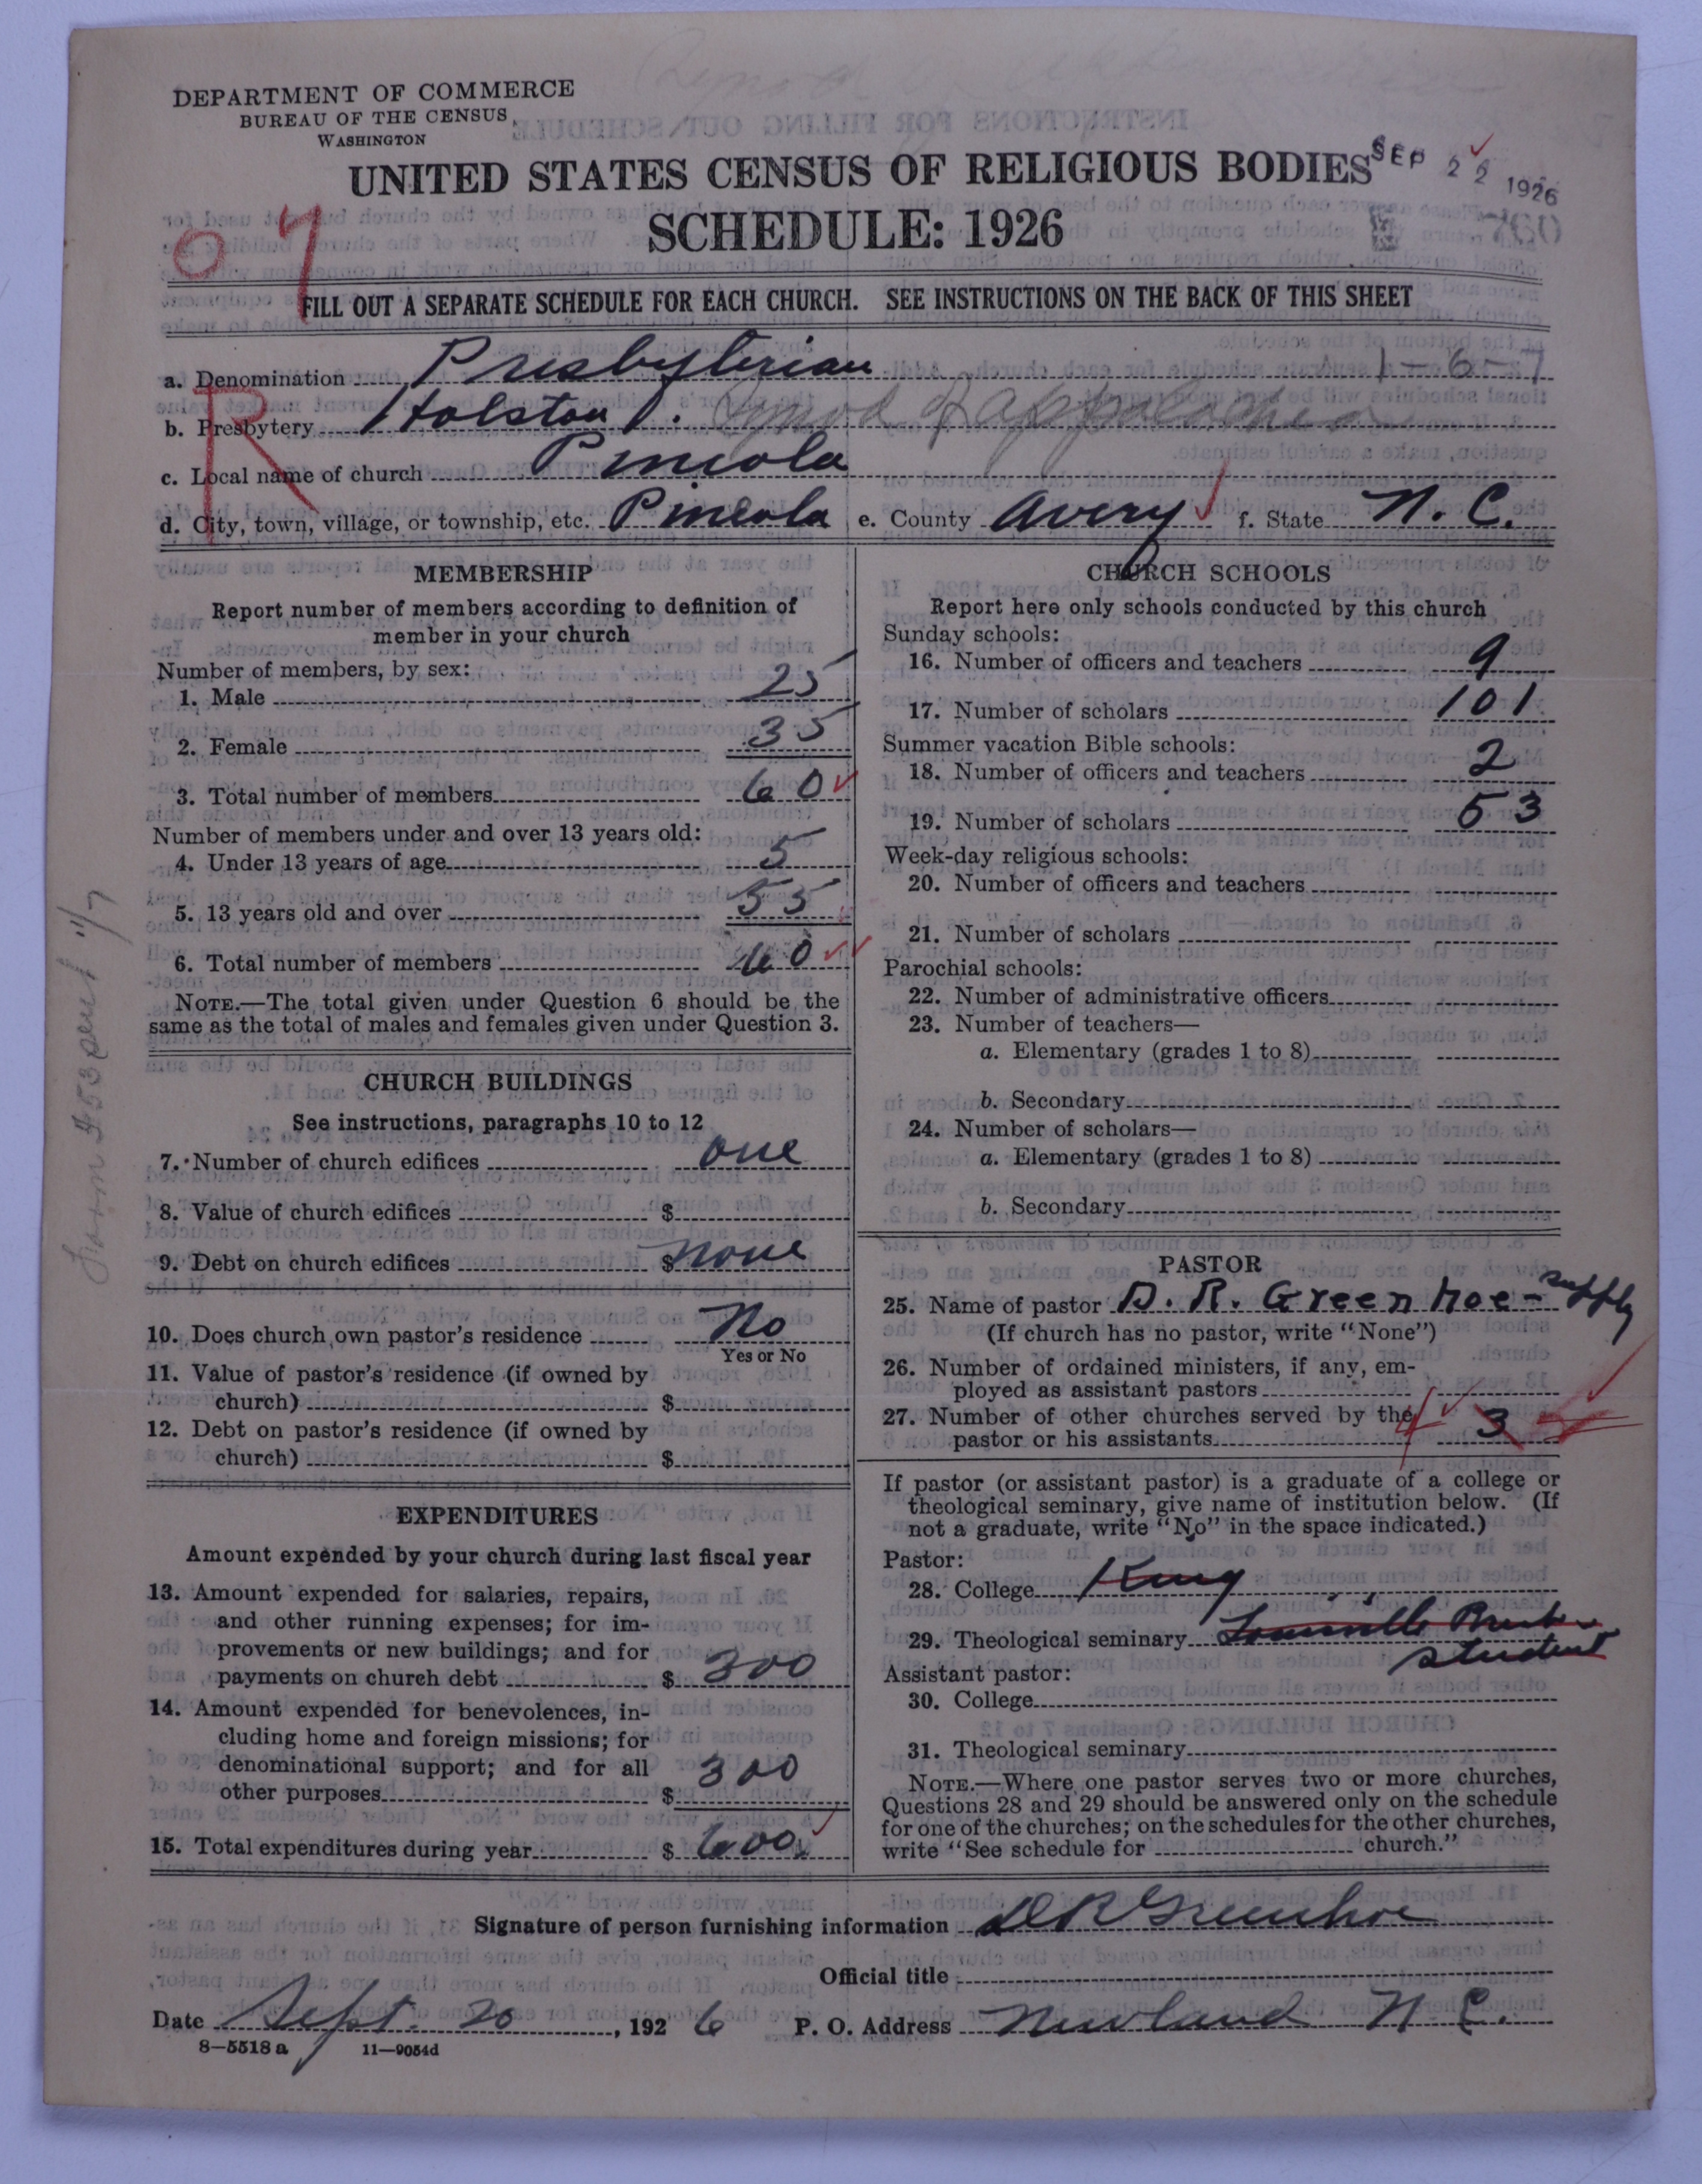 DEPARTMENT OF COMMERCE
BUREAU OF THE CENSUS
WASHINGTON
UNITED STATES CENSUS OF RELIGIOUS BODIES
SEP 22 1926
SCHEDULE: 1926
FILL OUT A SEPARATE SCHEDULE FOR EACH CHURCH. SEE INSTRUCTIONS ON THE BACK OF THIS SHEET
a. Denomination Presbyterian 1-6-7
b. Presbytery Holston P. Synod of Appalachia
R
c. Local name of church Pineola
d. City, town, village, or township, etc. Pineola e. County Avery f. State N. C.
MEMBERSHIP
Report number of members according to definition of
member in your church
Number of members, by sex:
1. Male 25
2. Female 35
3. Total number of members 60
Number of members under and over 13 years old:
4. Under 13 years of age 5
5. 13 years old and over 55
6. Total number of members 60
NOTE.—The total given under Question 6 should be the
same as the total of males and females given under Question 3.
CHURCH BUILDINGS
See instructions, paragraphs 10 to 12
7. Number of church edifices one
8. Value of church edifices $
9. Debt on church edifices $ none
10. Does church own pastor's residence No
Yes or No
11. Value of pastor's residence (if owned by
church) $
12. Debt on pastor's residence (if owned by
church) $
EXPENDITURES
Amount expended by your church during last fiscal year
13. Amount expended for salaries, repairs,
and other running expenses; for im-
provements or new buildings; and for
payments on church debt $ 300
14. Amount expended for benevolences, in-
cluding home and foreign missions; for
denominational support; and for all
other purposes $ 300
15. Total expenditures during year $ 600
CHURCH SCHOOLS
Report here only schools conducted by this church
Sunday schools:
16. Number of officers and teachers 9
17. Number of scholars 101
Summer vacation Bible schools:
18. Number of officers and teachers 2
19. Number of scholars 53
Week-day religious schools:
20. Number of officers and teachers
21. Number of scholars
Parochial schools:
22. Number of administrative officers
23. Number of teachers—
a. Elementary (grades 1 to 8)
b. Secondary
24. Number of scholars—
a. Elementary (grades 1 to 8)
b. Secondary
PASTOR
25. Name of pastor D. R. Greenhoe - supply
(If church has no pastor, write "None")
26. Number of ordained ministers, if any, em-
ployed as assistant pastors
27. Number of other churches served by the
pastor or his assistants 4 3
If pastor (or assistant pastor) is a graduate of a college or
theological seminary, give name of institution below. (If
not a graduate, write "No" in the space indicated.)
Pastor:
28. College King
29. Theological seminary Louisville Presb.
student
Assistant pastor:
30. College
31. Theological seminary
NOTE.—Where one pastor serves two or more churches,
Questions 28 and 29 should be answered only on the schedule
for one of the churches; on the schedules for the other churches,
write "See schedule for church."
Signature of person furnishing information D R Greenhoe
Official title
Date Sept. 20, 1926 P. O. Address Newland N. C.
8-5518 a 11-9054d
Form 453 sent 11/7